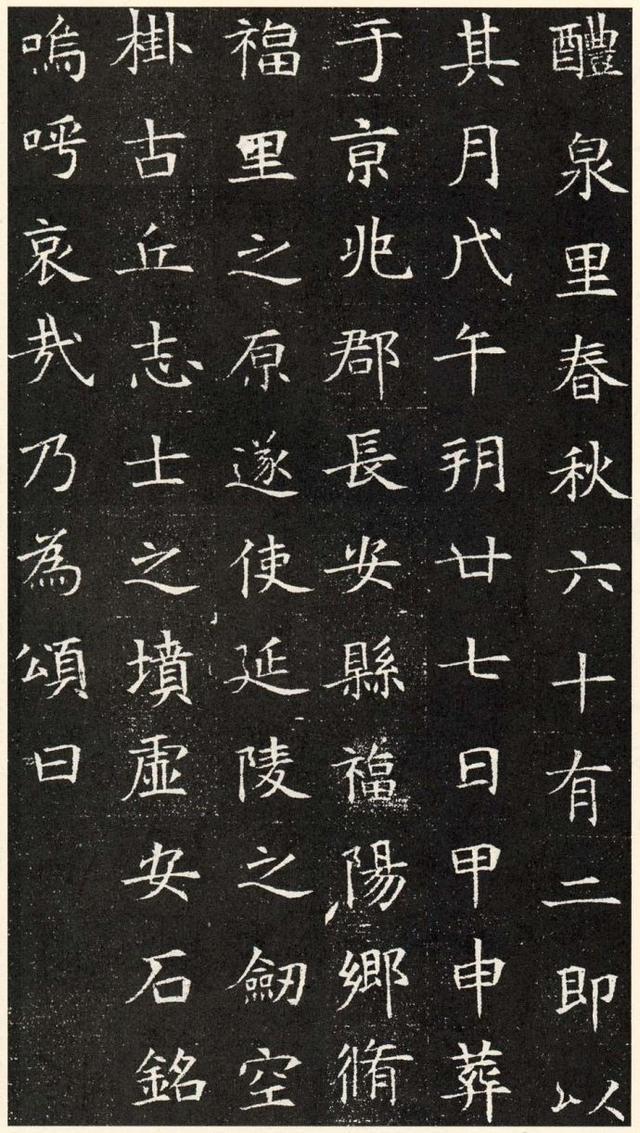 醴泉里春秋六十有二即以
其月戊午朔廿七日甲申葬
于京兆郡長安縣福陽鄉脩
福里之原遂使延陵之劒空
掛古丘志士之墳虛安石銘
嗚呼哀哉乃為頌曰